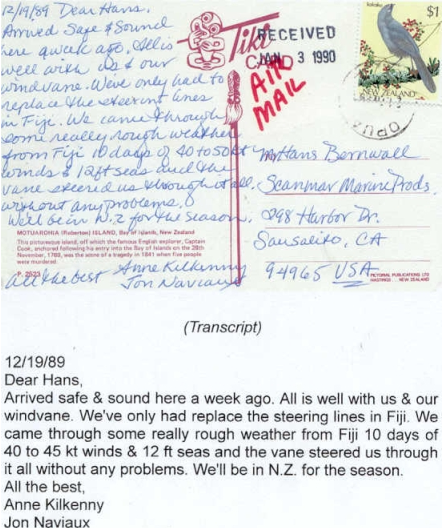 12/19/89 Dear Hans,
Arrived Safe & Sound
here a week ago. All is
well with us & our
windvane. We've only had to
replace the steering lines
in Fiji. We came through
some really rough weather
from Fiji 10 days of 40 to 50 kt
winds & 12 ft seas and the
vane steered us through it all
without any problems.
We'll be in N.Z for the season.
MOTUAROHIA (Roberton) ISLAND, Bay of Islands, New Zealand
This picturesque island, off which the famous English explorer, Captain
Cook, anchored following his entry into the Bay of Islands on the 29th
November, 1769, was the scene of a tragedy in 1841 when five people
were murdered.
P. 2523
All the best Anne Kilkenny
Jon Naviaux
Tiki
CARD
RECEIVED
JAN 3 1990
AIR
MAIL
kokako
$1
NEW ZEALAND
OPUA
Mr Hans Bernwall
Scanmar Marine Prods.
298 Harbor Dr.
Sausalito, CA
94965 USA
PICTORIAL PUBLICATIONS LTD
HASTINGS NEW ZEALAND
(Transcript)
12/19/89
Dear Hans,
Arrived safe & sound here a week ago. All is well with us & our
windvane. We've only had replace the steering lines in Fiji. We
came through some really rough weather from Fiji 10 days of
40 to 45 kt winds & 12 ft seas and the vane steered us through
it all without any problems. We'll be in N.Z. for the season.
All the best,
Anne Kilkenny
Jon Naviaux